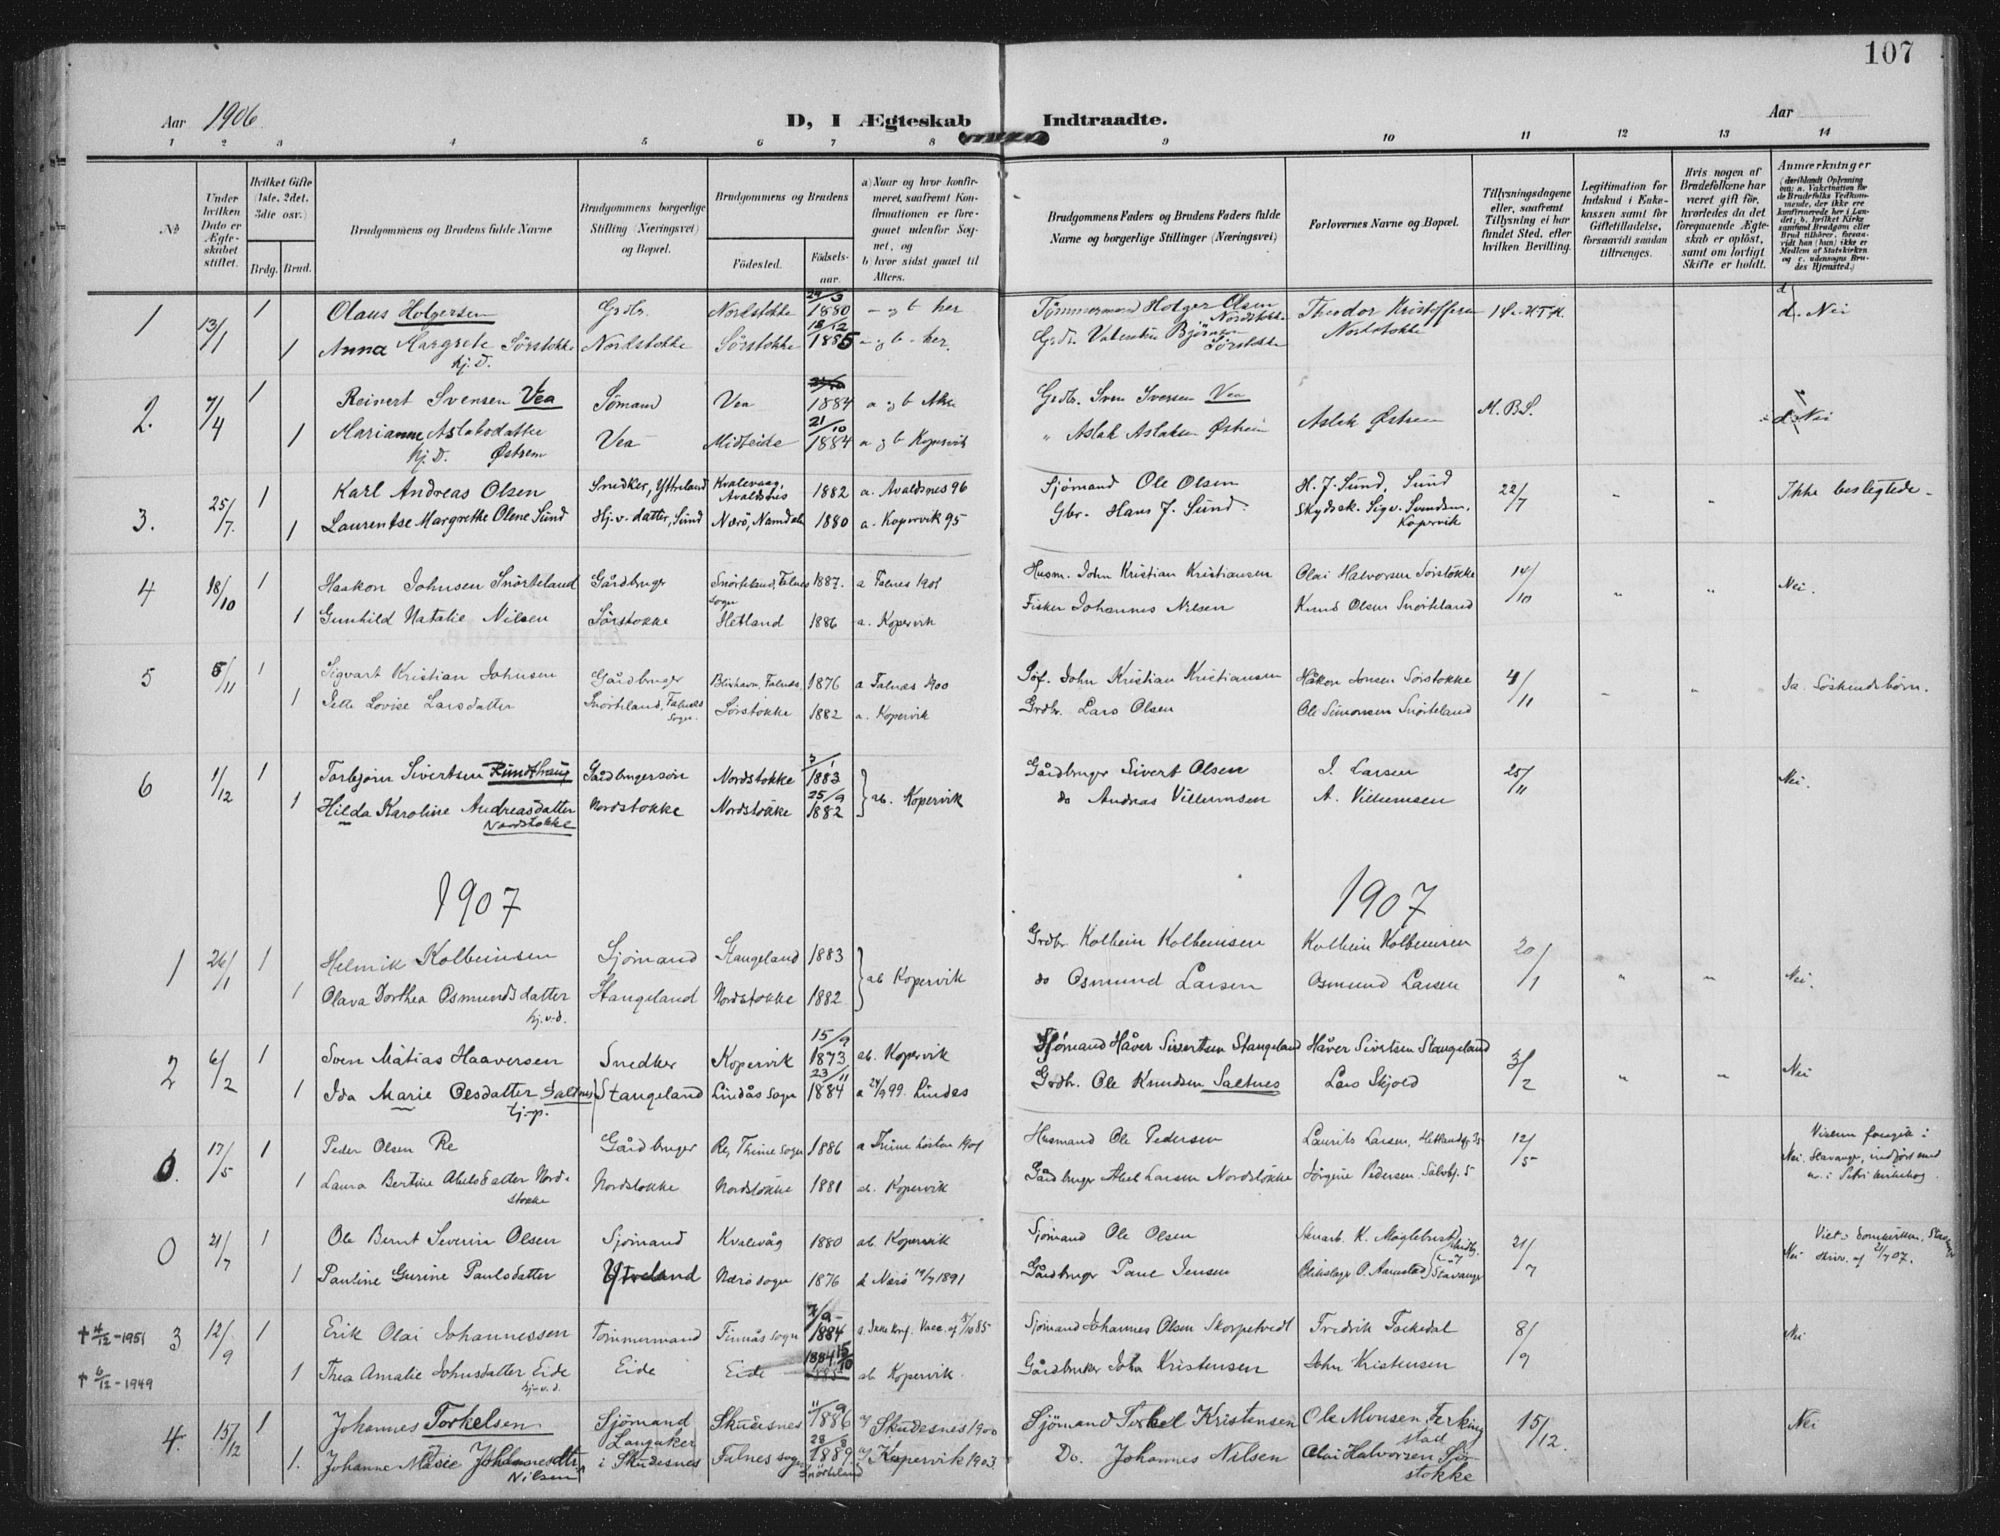 107
Aar 1906.
D, I Ægteskab Indtraadte.
Aar
1 2 3 4 5 6 7 8 9 10 11 12 13 14
№
Under hvilken Dato er Ægteskabet stiftet.
Hvilket Gifte (1ste, 2det, 3die osv.)
Brdg. Brud.
Brudgommens og Brudens fulde Navne
Brudgommens borgerlige Stilling (Næringsvei) og Bopæl.
Brudgommens og Brudens
Fødested. Fødselsaar.
a) Naar og hvor konfirmeret, saafremt Konfirmationen er foregaaet udenfor Sognet, og
b) hvor sidst gaaet til Alters.
Brudgommens Faders og Brudens Faders fulde Navne og borgerlige Stillinger (Næringsvei)
Forlovernes Navne og Bopæl.
Tillysningsdagene eller, saafremt Tillysning ei har fundet Sted, efter hvilken Bevilling.
Legitimation for Indskud i Enkekassen samt for Giftetilladelse, forsaavidt saadan tiltrænges.
Hvis nogen af Brudefolkene har været gift før, hvorledes da det foregaaende Ægteskab er opløst, samt om lovligt Skifte er holdt.
Anmærkninger
1 13/1 1 Olaus Holgersen Grdbr. Nordstokke 29/3 1880 - og b her Tømmermand Holger Olsen Nordstokke Theodor Kristoffersen d. Nei
1 Anna Margrete Sørstokke Nordstokke Sørstokke 13/12 1885 a og b - her. Grdbr. Bjørnsen Sørstokke Nordstokke
hj. D.
2. 7/4 1 Reinert Svensen Vea Sømand Vea 1884 a og b Grdbr. Sven Iversen Vea Aslak Østrem M.B.S. d. Nei
1 Marianne Aslaksdatter Vea Midteide 21/10 1884 a og b Kopervik " Aslak Aslaksen Østrem
hj. D. Østrem
3. 25/7. 1 Karl Andreas Olsen Snedker, Ytreland Kvalevaag, Avaldsnes 1882 a. Avaldsnes 96 Sjømand Ole Olsen H. J. Sund, Sund 22/7 " " Ikke beslegtede.
1 Laurentse Margrethe Olene Sund Hj. v. datter, Sund Nærø, Namdalen 1880 a. Kopervik 95 Gbr. Hans J. Sund Skydssk. Sigv. Svendsen, Kopervik
4 18/10 1 Haakon Johnsen Snørteland Gårdbruger Snørteland, Falnes sogn 1887. a Falnes 1901 Husm. John Kristian Kristiansen Olai Halvorsen Sørstokke 14/10 " " Nei.
1 Gunhild Natalie Nilsen Sørstokke Hetland 1886 a. Kopervik Fisker Johannes Nilsen Knud Olsen Snørteland
5 5/11 1 Sigvart Kristian Johnsen Gårdbruger Blixhavn, Falnes, 1876 a Falnæs 1900 Søf. John Kristian Kristiansen Håkon Jonsen Sørstokke 4/11 " " Ja. Søskendebörn.
1 Jette Lovise Larsdatter Snørteland, Falnes Sogn. Sørstokke 1882 a. Kopervik Grdbr. Lars Olsen Ole Simonsen Snørteland
6 1/12 1 Torbjørn Sivertsen Rundthaug Gårdbrugersøn Nordstokke 3/1 1883 ab. Kopervik Gårdbruger Sivert Olsen I. Larsen 25/11 Nei.
1 Hilda Karoline Andreasdatter Nordstokke Nordstokke Nordstokke 25/9 1882 do Andreas Villumsen A. Villumsen
1907 1907
1 26/1 1 Helmik Kolbeinsen Sjømand Stangeland 1883 ab Kopervik Grdbr. Kolbein Kolbeinsen Kolbein Kolbeinsen 20/1 " " Nei.
1 Olava Dorthea Osmundsdatter Stangeland Nordstokke 1882 do Osmund Larsen Osmund Larsen
hj.v.d.
2 6/2 1 Sven Matias Haaversen Snedker Kopervik 15/9 1873 ab. Kopervik Sjømand Håver Sivertsen Stangeland Håver Sivertsen Stangeland 3/2 " " Nei
1 Ida Marie Olesdatter Saltnes Stangeland Lindås sogn 23/11 1884 a 24/9 99. Lindås Grdbr. Ole Knudsen Saltnes Lars Skjold
tj.p.
0. 17/5 1 Peder Olsen Re Gårdbruger Re, Thime sogn 1886 a Thime høsten 1901 Husmand Ole Pedersen Laurits Larsen, Hetlandsg 35 12/5 Nei. Vielsen foregik i Stavanger, indført med n. i Petri kirkebog.
1 Laura Bertine Abelsdatter Nordstokke Nordstokke Nordstokke 1881 ab. Kopervik Gårdbruger Abel Larsen Nordstokke Jörgine Pedersen. 5
0 21/7 1 Ole Bernt Severin Olsen Sjømand Kvalevåg 1880 ab. Kopervik Sjømand Ole Olsen K. Møglebust 21/7 Nei Viet i Domkirken, Stavanger
1 Pauline Gurine Paulsdatter Ytreland Nærø sogn 1876 Nærø 1891 Gårdbruger Paul Jensen Blikslager O. Aamstad Stavanger af 21/7 07.
† 4/12-1951 3 12/9 1 Erik Olai Johannessen Tømmermand Finnås sogn 7/9 1884 a. Ikke konf. Vacc. 85 Sjømand Johannes Olsen Skorpetvedt Fredrik Tackedal 8/9 Nei
† 6/12-1949 1 Thea Amalie Johnsdatter Eide Eide Eide 1884 15/10 ab Kopervik. Gårdbruker John Kristensen John Kristensen
hj.v.d.
4. 15/12 1 Johannes Torkelsen Sjømand Langaker i Skudesnes Skudesnes 11/9 1886 a/ Skudesnes 1900 Sjømand Torkel Kristensen Ole Monsen Ferkingstad 15/12. Nei
1. Johanne Marie Johannesdtr. Nilsen Falnes sogn Snørteland 28/8 1889 a/ Kopervik 1903 Do. Johannes Nilsen Olai Halvorsen Sørstokke